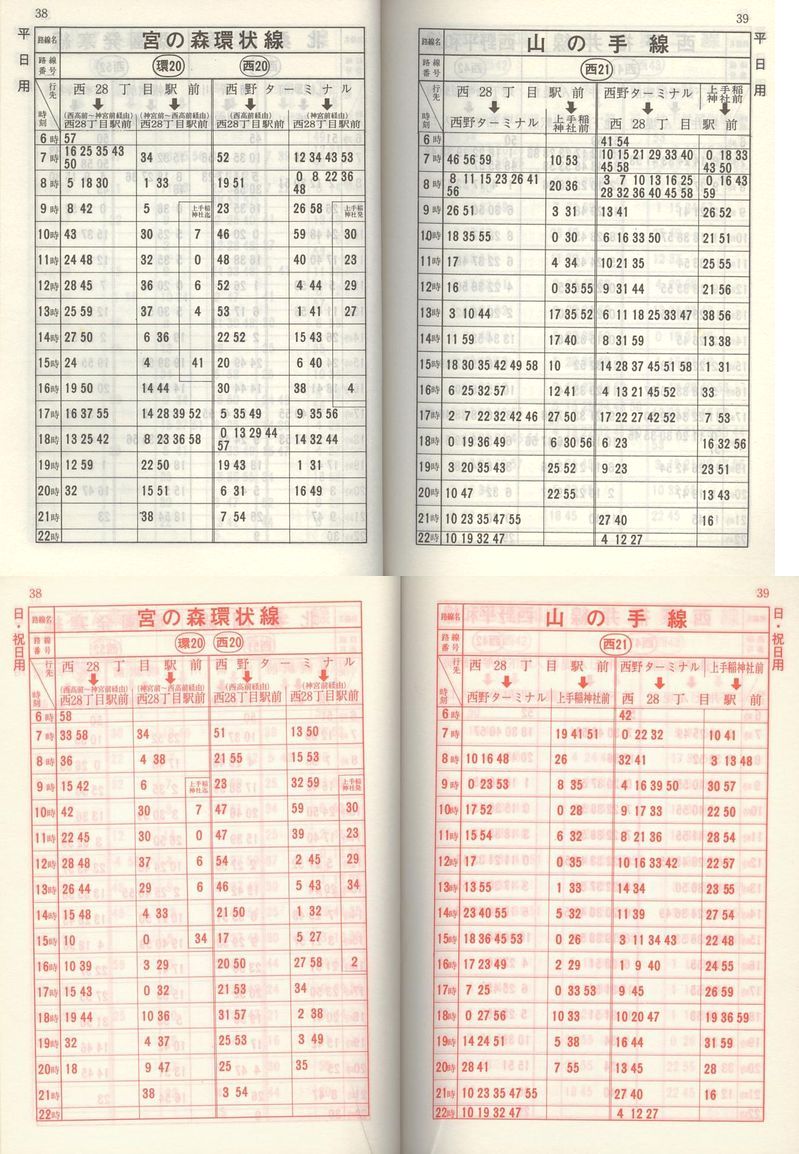 38
平日用
路線名 宮の森環状線
路線番号 環20 西20
行先 西28丁目駅前 西野ターミナル
(西高前～神宮前経由) (神宮前～西高前経由) (西高前経由) (神宮前経由)
時刻 西28丁目駅前 西28丁目駅前 西28丁目駅前 西28丁目駅前
6時 57
7時 16 25 35 43 50 34 52 12 34 43 53
8時 5 18 30 1 33 19 51 0 8 22 36 48
9時 8 42 5 上手稲神社迄 23 26 58 上手稲神社発
10時 43 30 7 46 59 30
11時 24 48 32 0 48 40 23
12時 28 45 36 6 52 4 44 29
13時 25 59 37 4 53 1 41 27
14時 27 50 6 36 22 52 15 43
15時 24 4 41 20 6 40
16時 19 50 14 44 30 38 4
17時 16 37 55 14 28 39 52 5 35 49 9 35 56
18時 13 25 42 8 23 36 58 0 13 29 44 57 14 32 44
19時 12 59 22 50 19 43 1 31
20時 32 15 51 6 31 16 49
21時 38 7 54
22時
39
平日用
路線名 山の手線
路線番号 西21
行先 西28丁目駅前 西野ターミナル 上手稲神社前
時刻 西野ターミナル 上手稲神社前 西28丁目駅前
6時 41 54
7時 46 56 59 10 53 10 15 21 29 33 40 45 58 0 18 33 43 50
8時 8 11 15 23 26 41 56 20 36 3 7 10 13 16 25 28 32 36 40 45 58 0 16 43 59
9時 26 51 3 31 13 41 26 52
10時 18 35 55 0 30 6 16 33 50 21 51
11時 17 4 34 10 21 35 25 55
12時 16 0 35 55 9 31 44 21 56
13時 3 10 44 17 35 52 6 11 18 25 33 47 38 56
14時 11 59 17 40 8 31 59 13 38
15時 18 30 35 42 49 58 10 14 28 37 45 51 58 1 31
16時 6 25 32 57 12 41 4 13 21 45 52 33
17時 2 7 22 32 42 46 27 50 17 22 27 42 52 7 53
18時 0 19 36 49 6 30 56 6 23 16 32 56
19時 3 20 35 43 25 52 9 23 23 51
20時 10 47 22 55 13 43
21時 10 23 35 47 55 27 40 16
22時 10 19 32 47 4 12 27
38
日・祝日用
路線名 宮の森環状線
路線番号 環20 西20
行先 西28丁目駅前 西野ターミナル
(西高前～神宮前経由) (神宮前～西高前経由) (西高前経由) (神宮前経由)
時刻 西28丁目駅前 西28丁目駅前 西28丁目駅前 西28丁目駅前
6時 58
7時 33 58 34 51 13 50
8時 36 4 38 21 55 15 53
9時 15 42 6 上手稲神社迄 23 32 59 上手稲神社発
10時 42 30 7 47 59 30
11時 22 45 30 0 47 39 23
12時 28 48 37 6 54 2 45 29
13時 26 44 29 6 46 5 43 34
14時 15 48 4 33 21 50 1 32
15時 10 0 34 17 5 27
16時 10 39 3 29 20 50 27 58 2
17時 15 43 0 32 21 53 34
18時 19 44 10 36 31 57 2 38
19時 32 4 37 25 53 3 49
20時 18 9 47 25 35
21時 38 3 54
22時
39
日・祝日用
路線名 山の手線
路線番号 西21
行先 西28丁目駅前 西野ターミナル 上手稲神社前
時刻 西野ターミナル 上手稲神社前 西28丁目駅前
6時 42
7時 19 41 51 0 22 32 10 41
8時 10 16 48 26 32 41 3 13 48
9時 0 23 53 8 35 4 16 39 50 30 57
10時 17 52 0 28 9 17 33 22 50
11時 15 54 6 32 8 21 36 28 54
12時 17 0 35 10 16 33 42 22 57
13時 13 55 1 33 14 34 23 55
14時 23 40 55 5 32 11 39 27 54
15時 18 36 45 53 0 26 3 11 34 43 22 48
16時 17 23 49 2 29 1 9 40 24 55
17時 7 25 0 33 53 9 45 26 59
18時 0 27 56 10 33 10 20 47 19 36 59
19時 14 24 51 5 38 16 44 31 59
20時 28 41 7 55 13 45 28
21時 10 23 35 47 55 27 40 16
22時 10 19 32 47 4 12 27